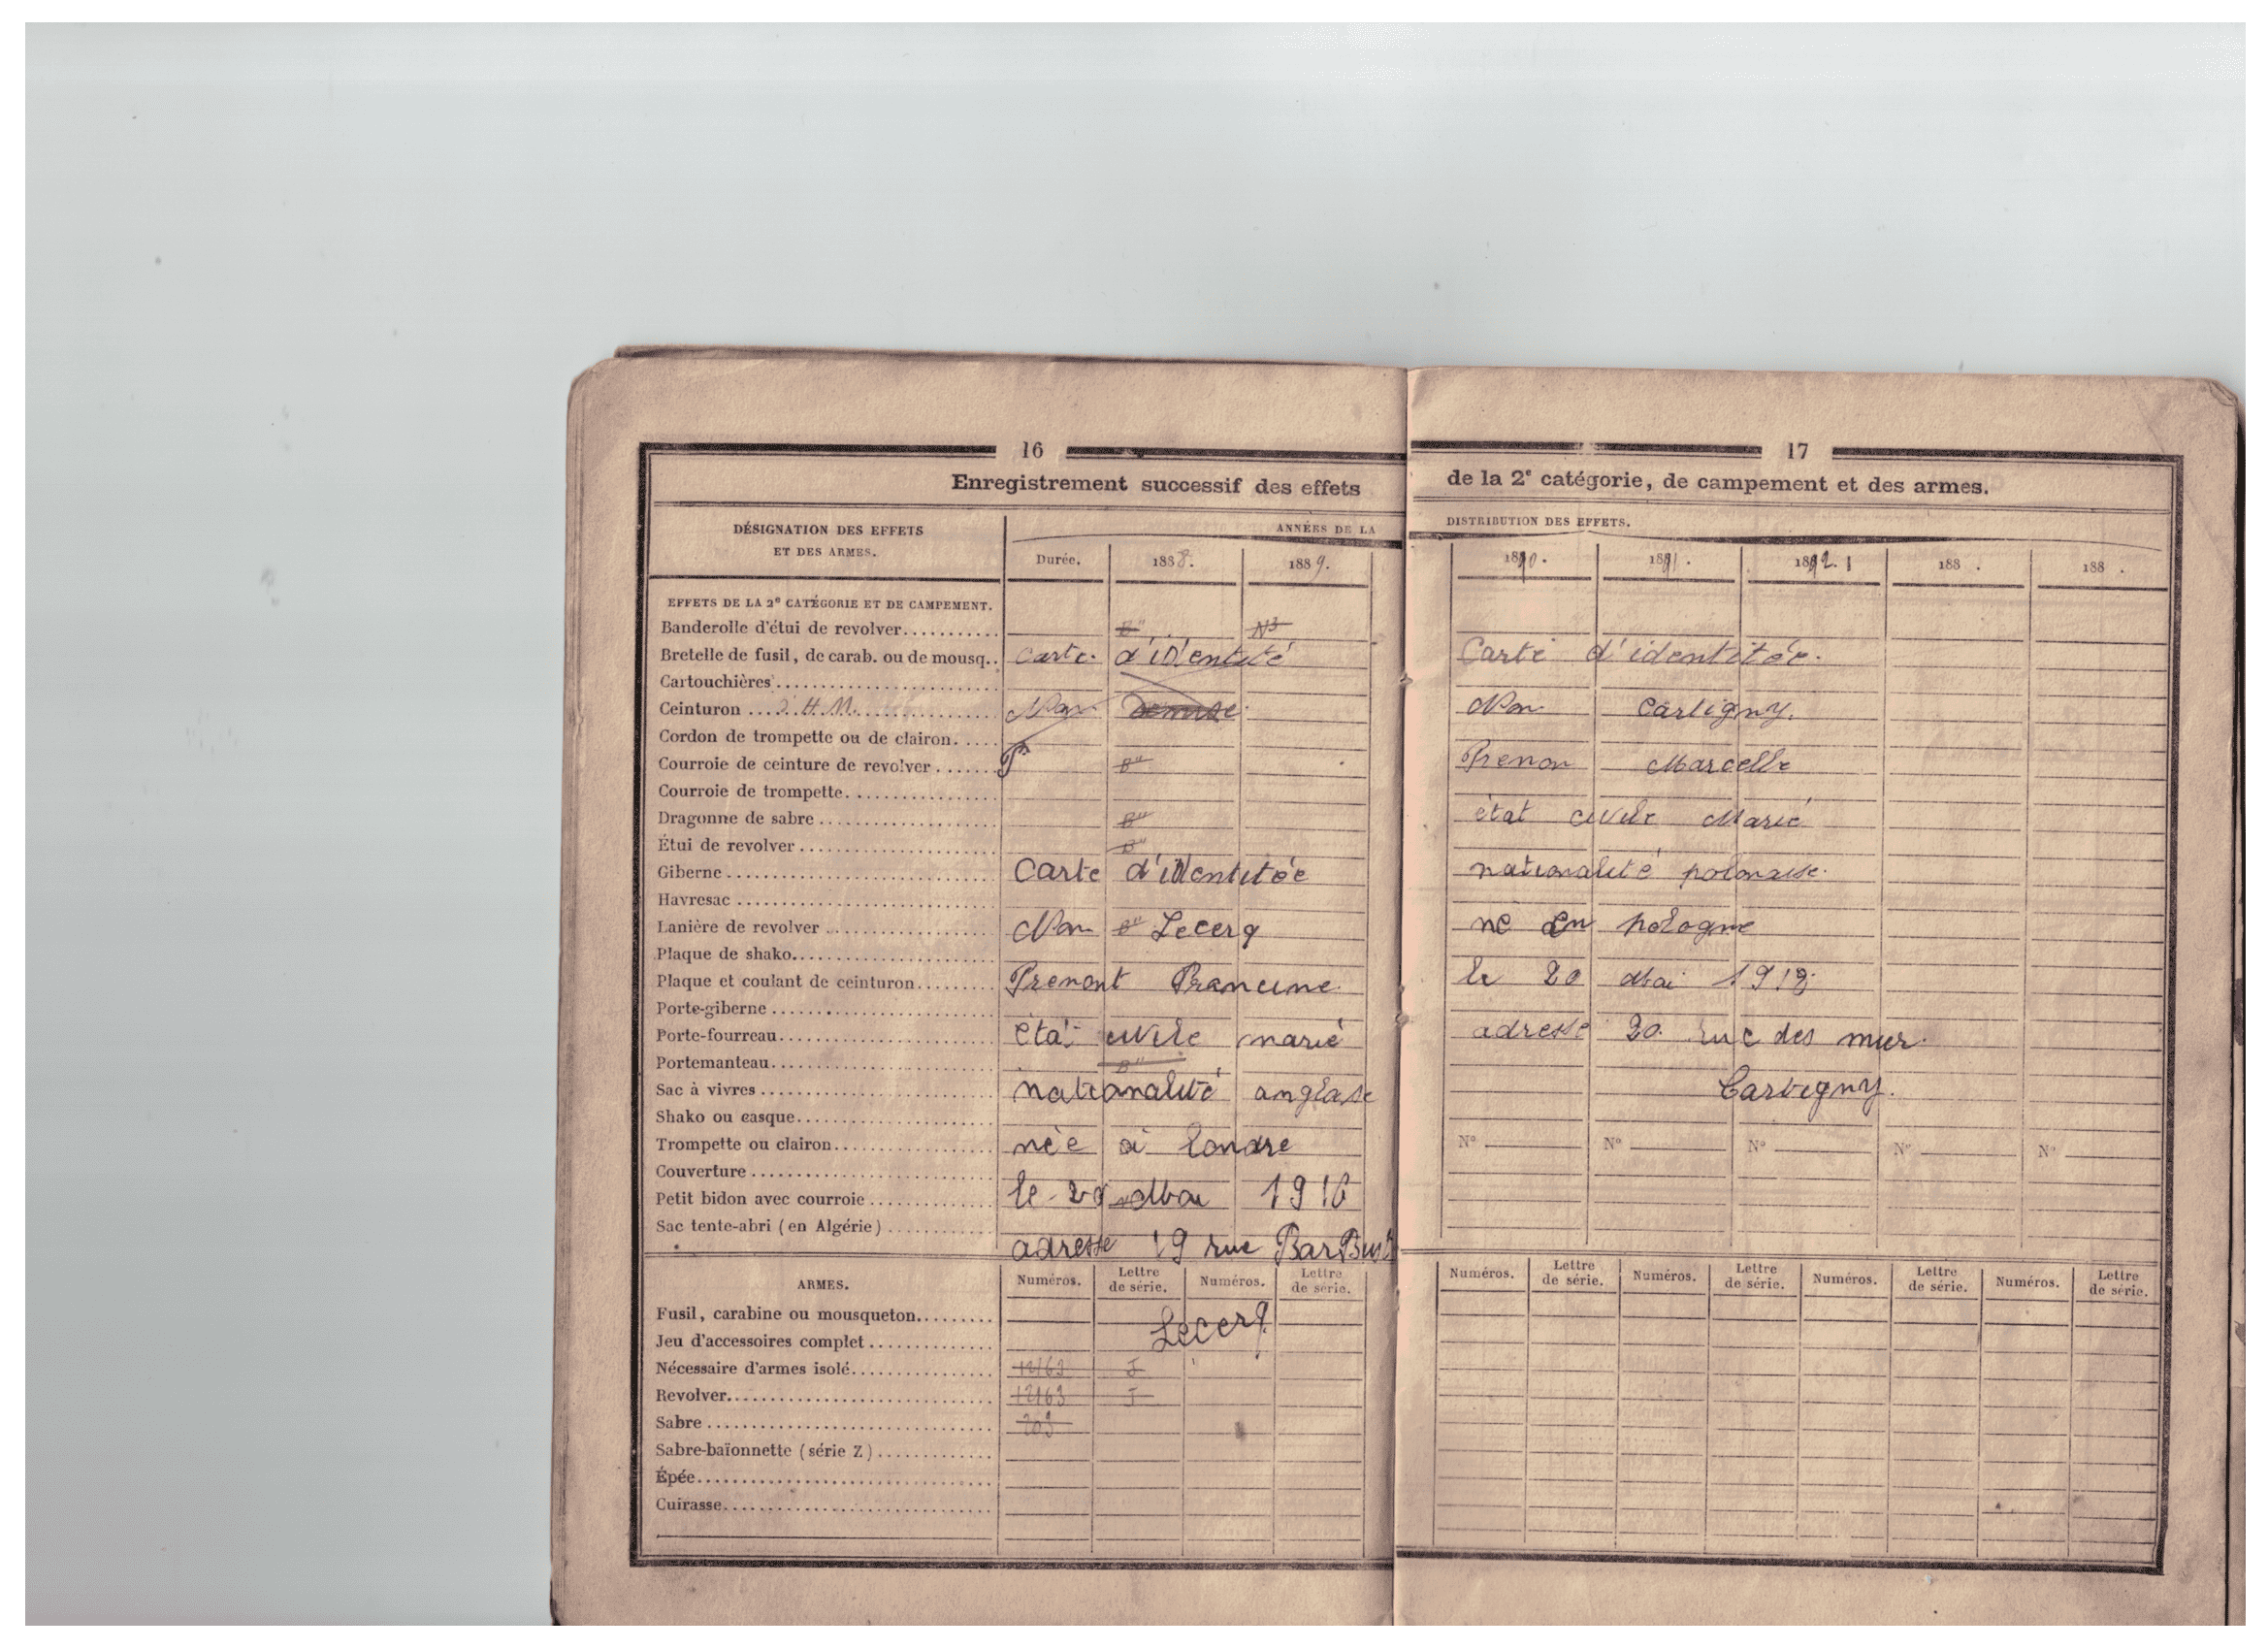 16
Enregistrement successif des effets
DÉSIGNATION DES EFFETS
ET DES ARMES.
ANNÉES DE LA
Durée.
1888.
1889.
EFFETS DE LA 2e CATÉGORIE ET DE CAMPEMENT.
Banderolle d'étui de revolver
Bretelle de fusil, de carab. ou de mousq.. Carte d'iDentité
Cartouchières
Ceinturon Nom
Cordon de trompette ou de clairon
Courroie de ceinture de revolver
Courroie de trompette
Dragonne de sabre
Étui de revolver
Giberne Carte d'iDentitée
Havresac
Lanière de revolver Nom Lecerq
Plaque de shako
Plaque et coulant de ceinturon Prenont Francine
Porte-giberne
Porte-fourreau état civile marié
Portemanteau
Sac à vivres nationalité anglase
Shako ou casque
Trompette ou clairon née a Londre
Couverture
Petit bidon avec courroie le 20 Mai 1916
Sac tente-abri (en Algérie)
adresse 19 rue
ARMES.
Numéros. Lettre de série. Numéros. Lettre de série.
Fusil, carabine ou mousqueton
Lecerq
Jeu d'accessoires complet
Nécessaire d'armes isolé 12163 J
Revolver 12163 J
Sabre 203
Sabre-baïonnette (série Z)
Épée
Cuirasse
17
de la 2e catégorie, de campement et des armes.
DISTRIBUTION DES EFFETS.
1890. 1891. 1892. 188 . 188 .
Carte d'identitée.
Nom Cartigny.
Prenom Marcelle
état civile Marié
nationalité polonaise.
né en pologne
le 20 Mai 1918
adresse 20 rue des mur.
Cartigny.
N° N° N° N° N°
Numéros. Lettre de série. Numéros. Lettre de série. Numéros. Lettre de série. Numéros. Lettre de série.